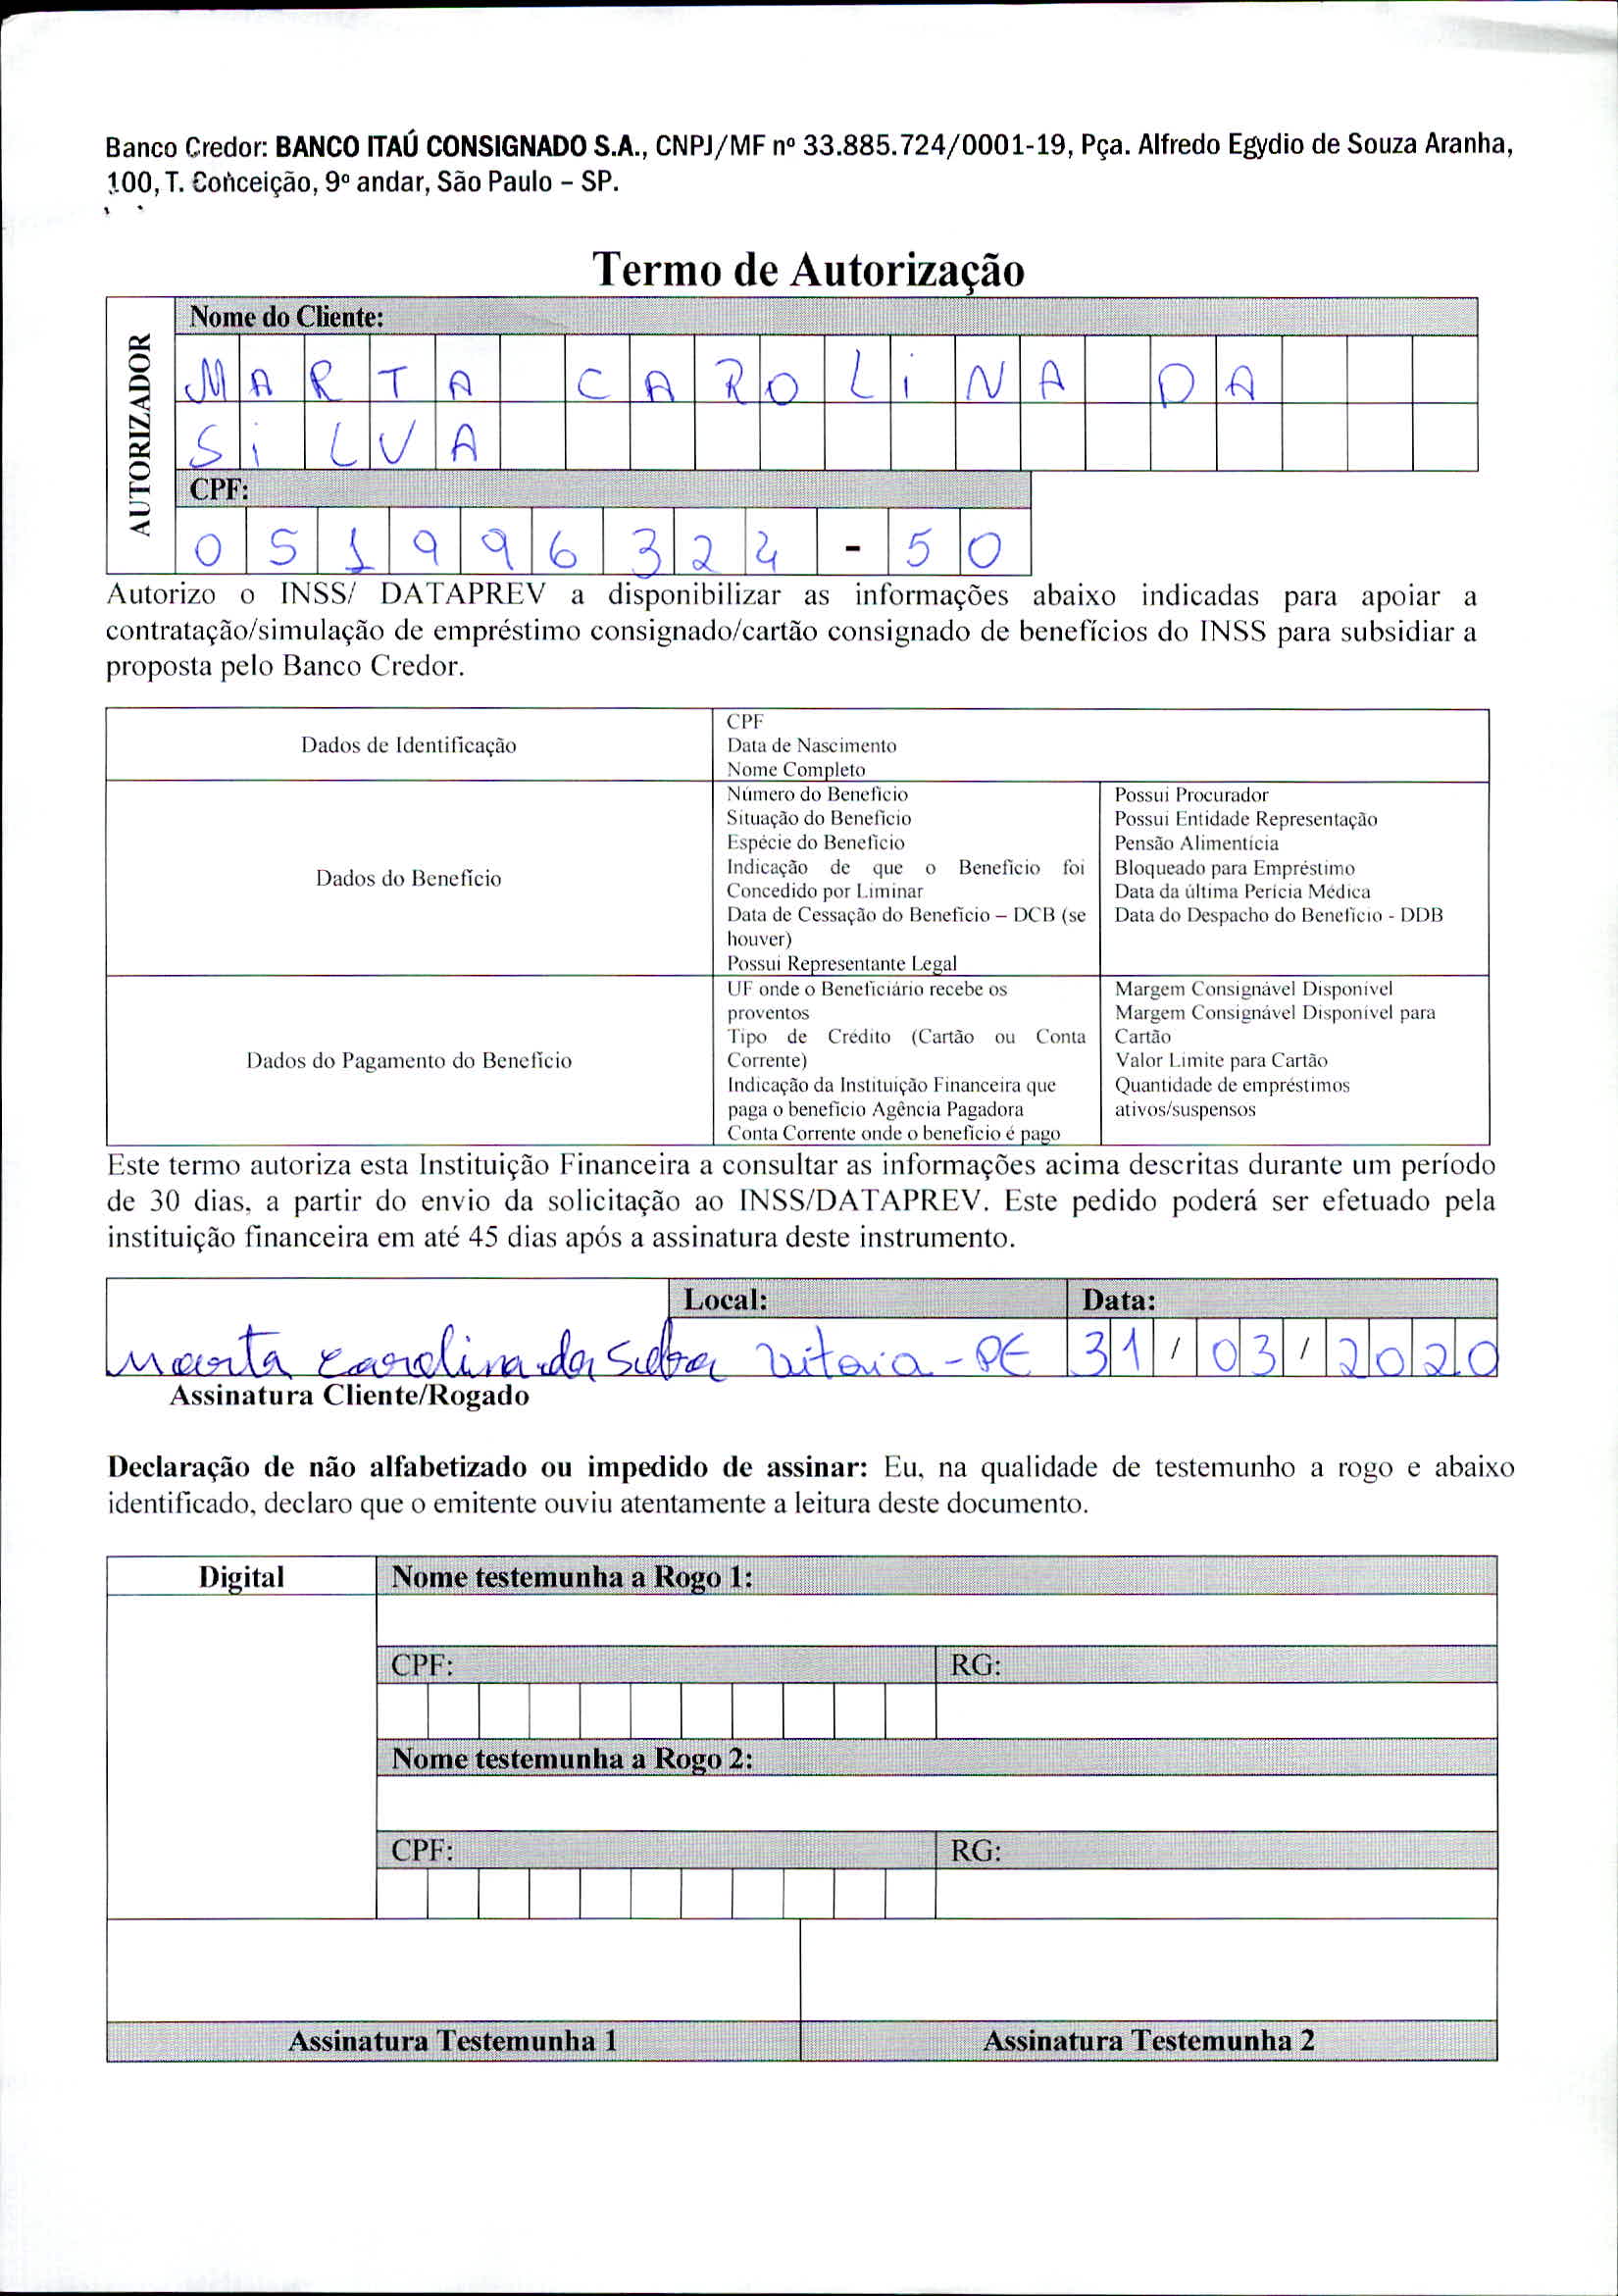 Banco Credor: BANCO ITAÚ CONSIGNADO S.A., CNPJ/MF nº 33.885.724/0001-19, Pça. Alfredo Egydio de Souza Aranha,
100, T. Conceição, 9º andar, São Paulo – SP.
Termo de Autorização
AUTORIZADOR
Nome do Cliente:
MARTA CAROLINA DA
SILVA
CPF:
051996324-50
Autorizo o INSS/ DATAPREV a disponibilizar as informações abaixo indicadas para apoiar a
contratação/simulação de empréstimo consignado/cartão consignado de benefícios do INSS para subsidiar a
proposta pelo Banco Credor.
Dados de Identificação
CPF
Data de Nascimento
Nome Completo
Dados do Benefício
Número do Benefício
Situação do Benefício
Espécie do Benefício
Indicação de que o Benefício foi
Concedido por Liminar
Data de Cessação do Benefício – DCB (se
houver)
Possui Representante Legal
Possui Procurador
Possui Entidade Representação
Pensão Alimentícia
Bloqueado para Empréstimo
Data da última Perícia Médica
Data do Despacho do Benefício - DDB
Dados do Pagamento do Benefício
UF onde o Beneficiário recebe os
proventos
Tipo de Crédito (Cartão ou Conta
Corrente)
Indicação da Instituição Financeira que
paga o benefício Agência Pagadora
Conta Corrente onde o benefício é pago
Margem Consignável Disponível
Margem Consignável Disponível para
Cartão
Valor Limite para Cartão
Quantidade de empréstimos
ativos/suspensos
Este termo autoriza esta Instituição Financeira a consultar as informações acima descritas durante um período
de 30 dias, a partir do envio da solicitação ao INSS/DATAPREV. Este pedido poderá ser efetuado pela
instituição financeira em até 45 dias após a assinatura deste instrumento.
Local: Data:
Marta Carolina da Silva Vitoria - PE 31/03/2020
Assinatura Cliente/Rogado
Declaração de não alfabetizado ou impedido de assinar: Eu, na qualidade de testemunho a rogo e abaixo
identificado, declaro que o emitente ouviu atentamente a leitura deste documento.
Digital
Nome testemunha a Rogo 1:
CPF: RG:
Nome testemunha a Rogo 2:
CPF: RG:
Assinatura Testemunha 1 Assinatura Testemunha 2